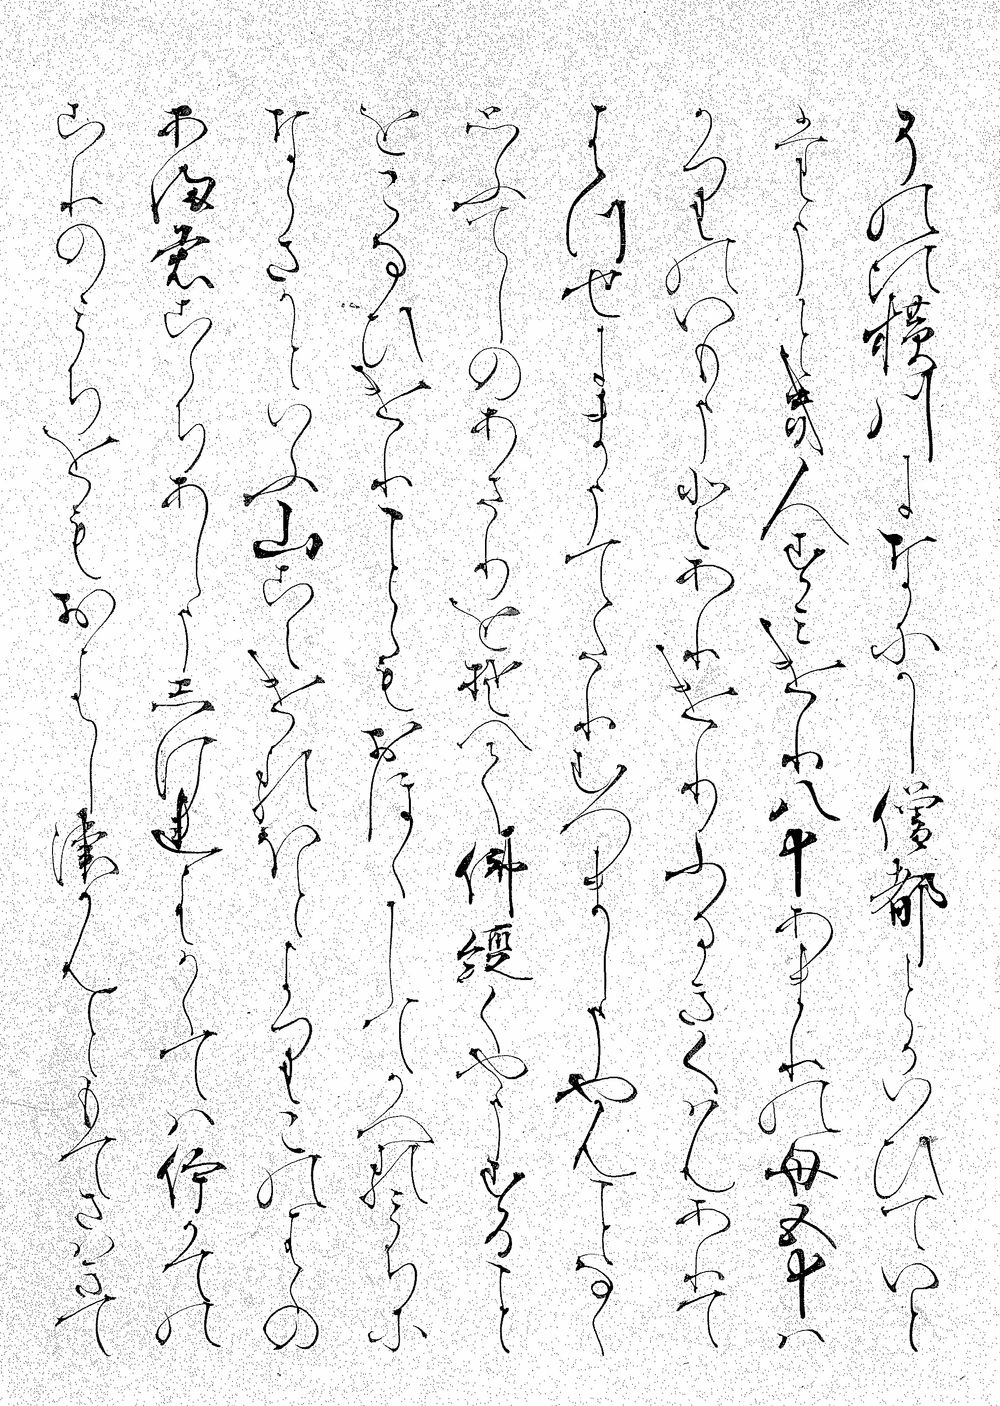 そのころ横川になにかし僧都とかいひていと
たうとき人すみけり八十あまりの母五十は
かりのいもうとありけりふるきくはんありて
はつせにまうてたりけりむつましうやんことなく
思ふてしのあさりをそへて仏経くやうすること
をこなひけりことゝもおほくしてかへるみちに
ならさかといふ山こえけるほとよりこのはゝの
あま君こゝちあしうしけれはかくてはいかての
こりのみちをもおはしつかんともてさはきて